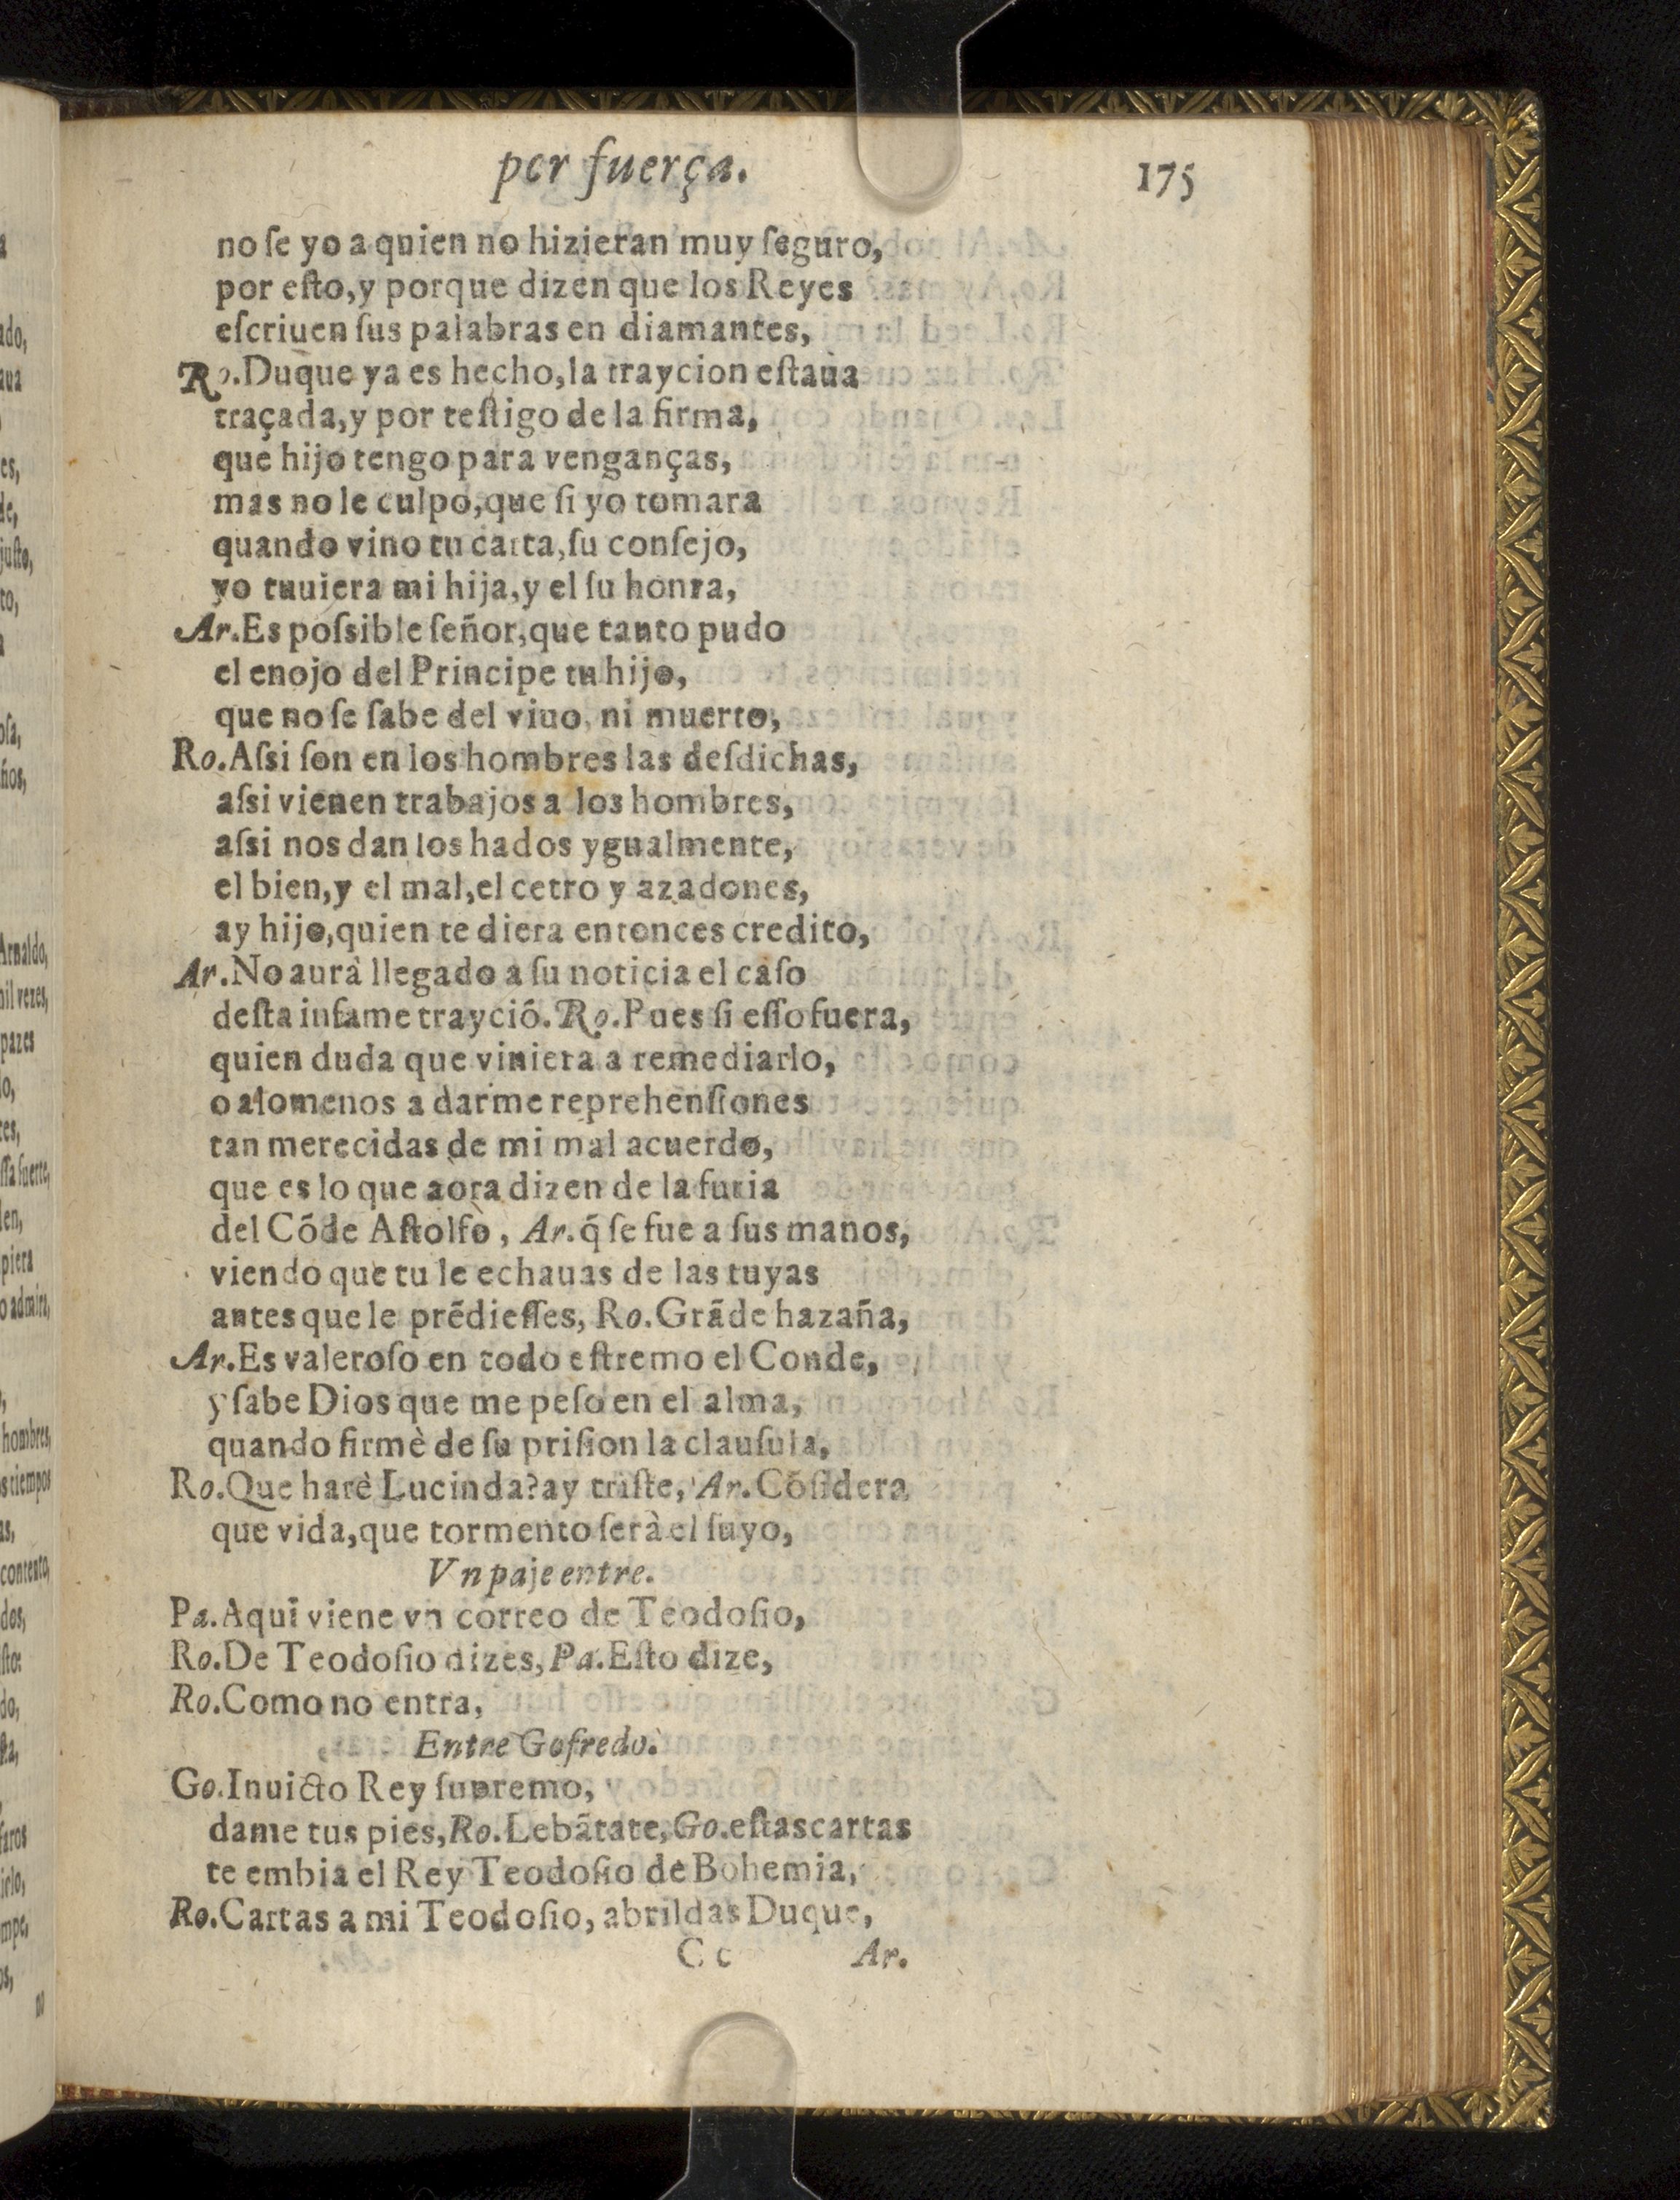 por fuerça. 175
no ſe yo a quien no hizieran muy ſeguro,
por eſto, y porque dizen que los Reyes
eſcriuen ſus palabras en diamantes,
Ro. Duque ya es hecho, la traycion eſtaua
traçada, y por teſtigo de la firma,
que hijo tengo para venganças,
mas no le culpo, que ſi yo tomara
quando vino tu carta, ſu conſejo,
yo tuuiera mi hija, y el ſu honra,
Ar. Es poſsible ſeñor, que tanto pudo
el enojo del Principe tu hijo,
que no ſe ſabe del viuo, ni muerto,
Ro. Aſsi ſon en los hombres las deſdichas,
aſsi vienen trabajos a los hombres,
aſsi nos dan los hados ygualmente,
el bien, y el mal, el cetro y azadones,
ay hijo, quien te diera entonces credito,
Ar. No aurà llegado a ſu noticia el caſo
deſta infame trayciõ. Ro. Pues ſi eſſo fuera,
quien duda que viniera a remediarlo,
o alomenos a darme reprehenſiones
tan merecidas de mi mal acuerdo,
que es lo que aora dizen de la furia
del Cõde Aſtolfo, Ar. q̃ ſe fue a ſus manos,
viendo que tu le echauas de las tuyas
antes que le prẽdieſſes, Ro. Grãde hazaña,
Ar. Es valeroſo en todo eſtremo el Conde,
y ſabe Dios que me peſo en el alma,
quando firmè de ſu priſion la clauſula,
Ro. Que harè Lucinda? ay triſte, Ar. Cõſidera
que vida, que tormento ſerà el ſuyo,
Vn paje entre.
Pa. Aqui viene vn correo de Teodoſio,
Ro. De Teodoſio dizes, Pa. Eſto dize,
Ro. Como no entra,
Entre Gofredo.
Go. Inuicto Rey ſupremo,
dame tus pies, Ro. Lebãtate, Go. eſtas cartas
te embia el Rey Teodoſio de Bohemia,
Ro. Cartas a mi Teodoſio, abrildas Duque,
Cc Ar.